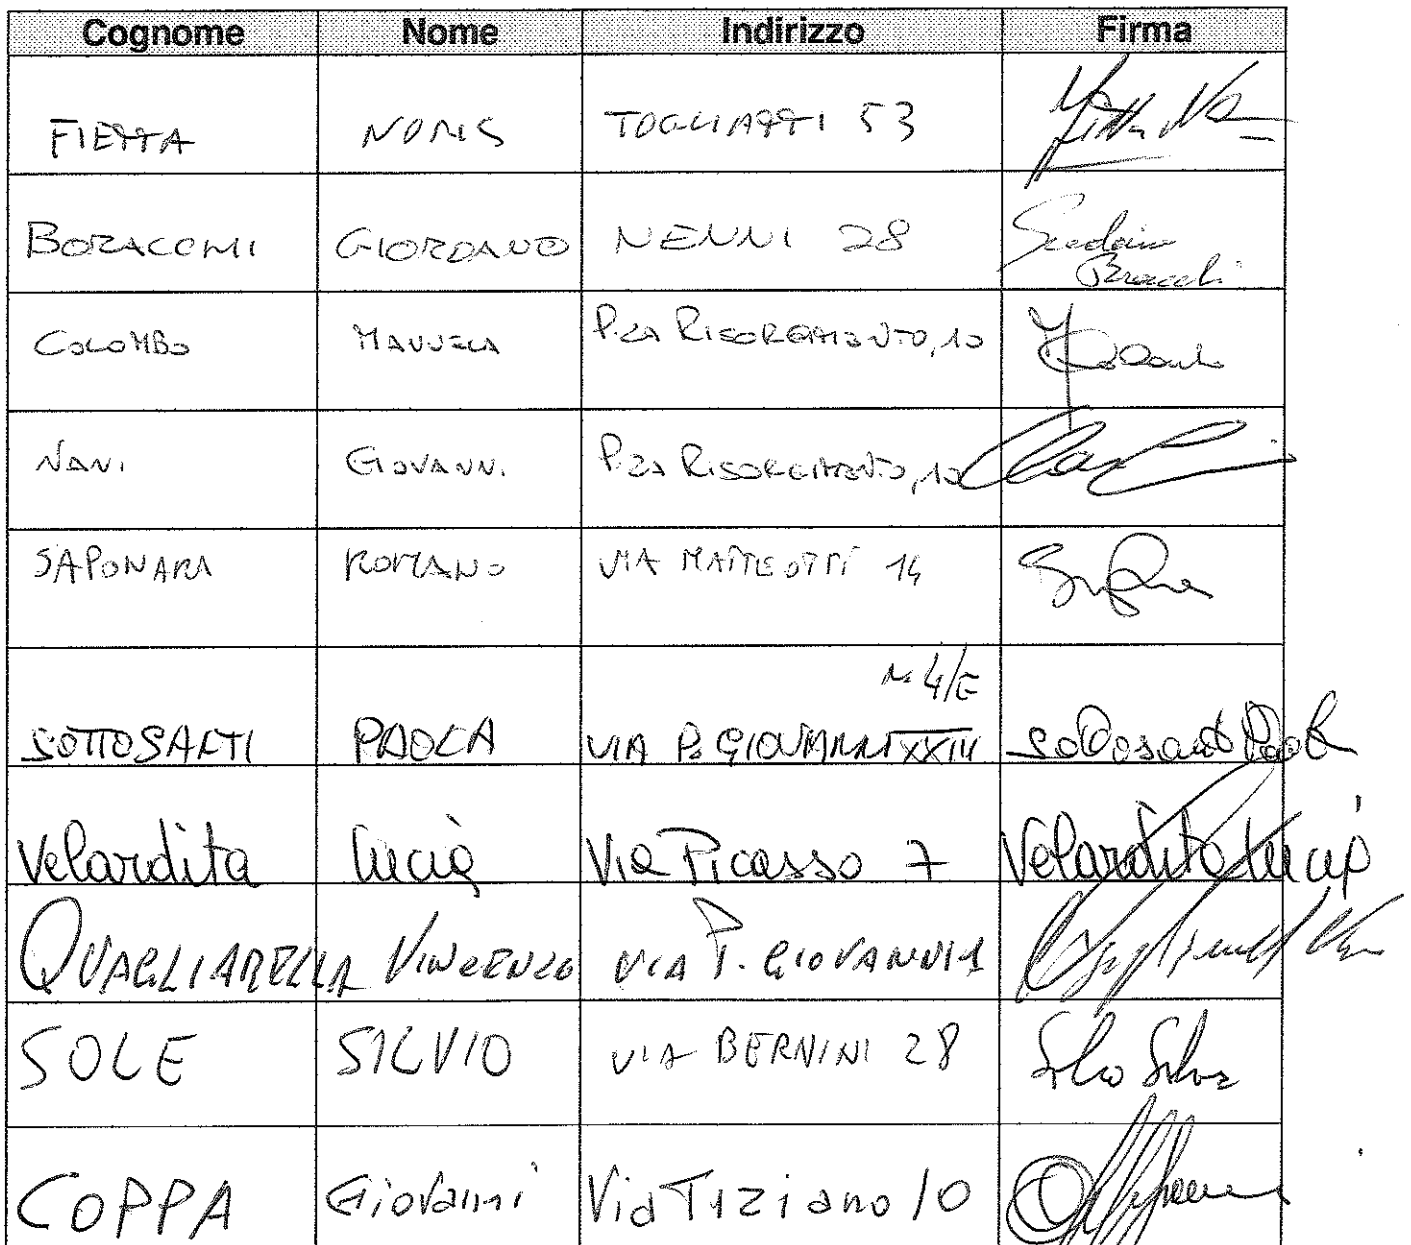 Cognome Nome Indirizzo Firma
FIETTA NORIS TOGLIATTI 53
BORACCHI GIORDANO NENNI 28
COLOMBO MANUELA P.ZA RISORGIMENTO, 10
NANI GIOVANNI P.ZA RISORGIMENTO, 10
SAPONARA ROMANO VIA MATTEOTTI 14
N. 4/E
SOTTOSANTI PAOLA VIA P. GIOVANNI XXIII Sottosanti Paola
Velardita Lucia Via Picasso 7 Velardita Lucia
QUAGLIARELLA VINCENZO VIA P. GIOVANNI
SOLE SILVIO VIA BERNINI 28
COPPA Giovanni Via Tiziano 10